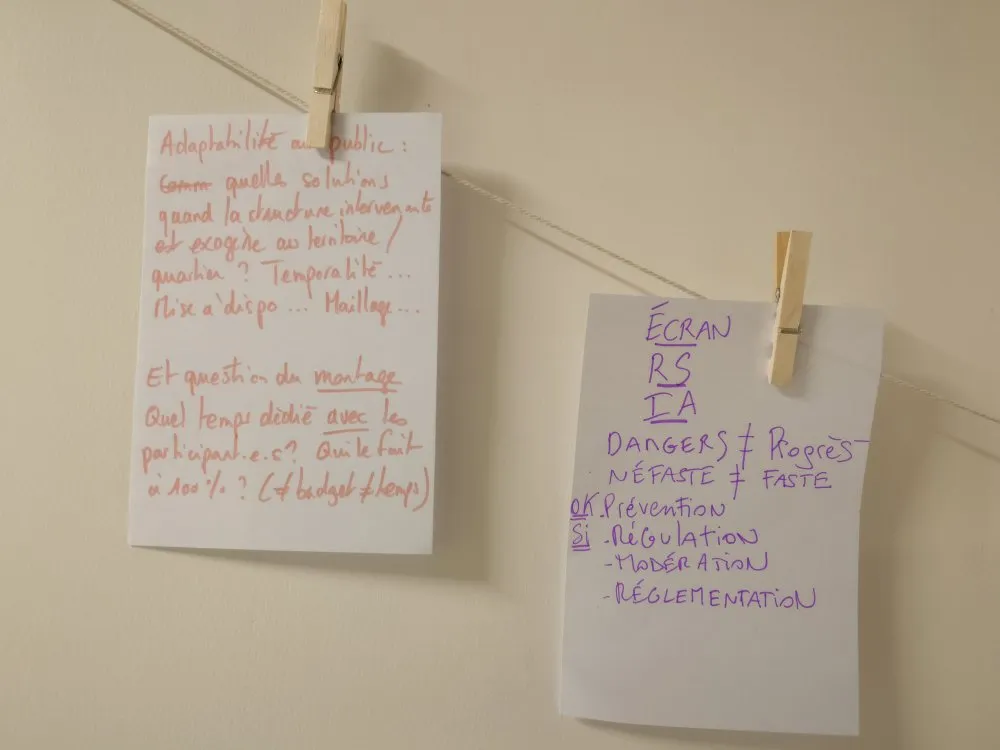 Adaptabilité au public :
Comm quelles solutions
quand la structure intervenante
est exogène au territoire /
quartier ? Temporalité ...
Mise à dispo ... Maillage ...
Et question du montage
Quel temps dédié avec les
participant.e.s ? Qui le fait
à 100% ? (≠ budget ≠ temps)
ÉCRAN
RS
IA
DANGERS ≠ Progrès
NÉFASTE ≠ FASTE
OK . Prévention
Si . RéGULATION
- MODÉRATION
- RÉGLEMENTATION